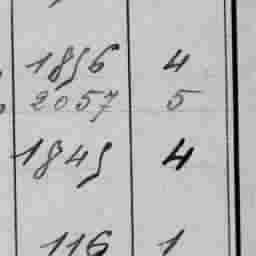 1856 4
2057 5
1845 4
116 1